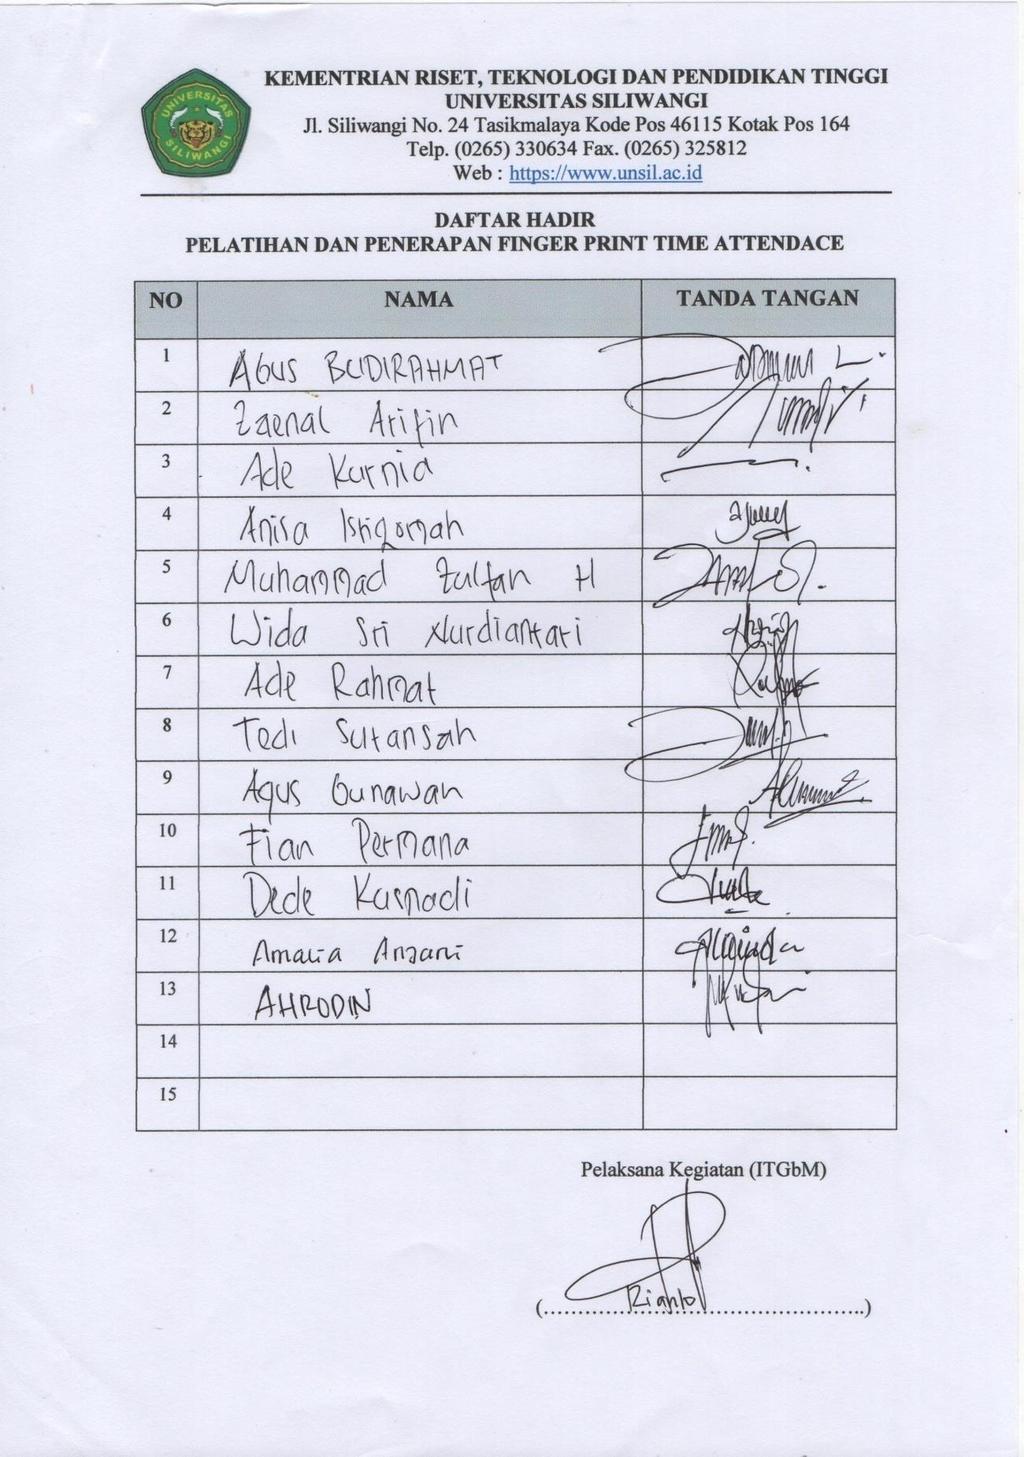 UNIVERSITAS
SILIWANGI
KEMENTRIAN RISET, TEKNOLOGI DAN PENDIDIKAN TINGGI
UNIVERSITAS SILIWANGI
Jl. Siliwangi No. 24 Tasikmalaya Kode Pos 46115 Kotak Pos 164
Telp. (0265) 330634 Fax. (0265) 325812
Web : https://www.unsil.ac.id
DAFTAR HADIR
PELATIHAN DAN PENERAPAN FINGER PRINT TIME ATTENDACE
NO NAMA TANDA TANGAN
1 AGUS BUDIRAHMAT
2 Zaenal Arifin
3 Ade Kurnia
4 Anisa Istiqomah
5 Muhammad Zulfan H
6 Wida Sri Nurdiantari
7 Ade Rahmat
8 Tedi Sutansah
9 Agus Gunawan
10 Fian Permana
11 Dede Kusnadi
12 Amalia Anzani
13 AHRODIN
14
15
Pelaksana Kegiatan (ITGbM)
(Rianto)